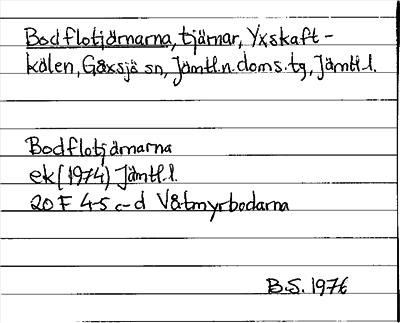 Bodflotjärnarna, tjärnar, Yxskaft-
kälen, Gåxsjö sn, Jämtl.n.doms.tg, Jämtl.l.
Bodflotjärnarna
ek (1974) Jämtl.l.
20 F 4-5 c-d Våtmyrbodarna
B.S. 1976